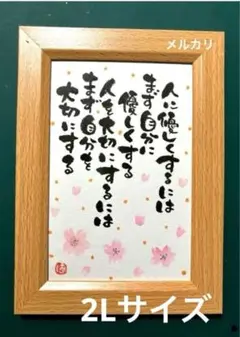 メルカリ
人に優しくするには
まず自分に
優しくする
人を大切にするには
まず自分を
大切にする
2Lサイズ